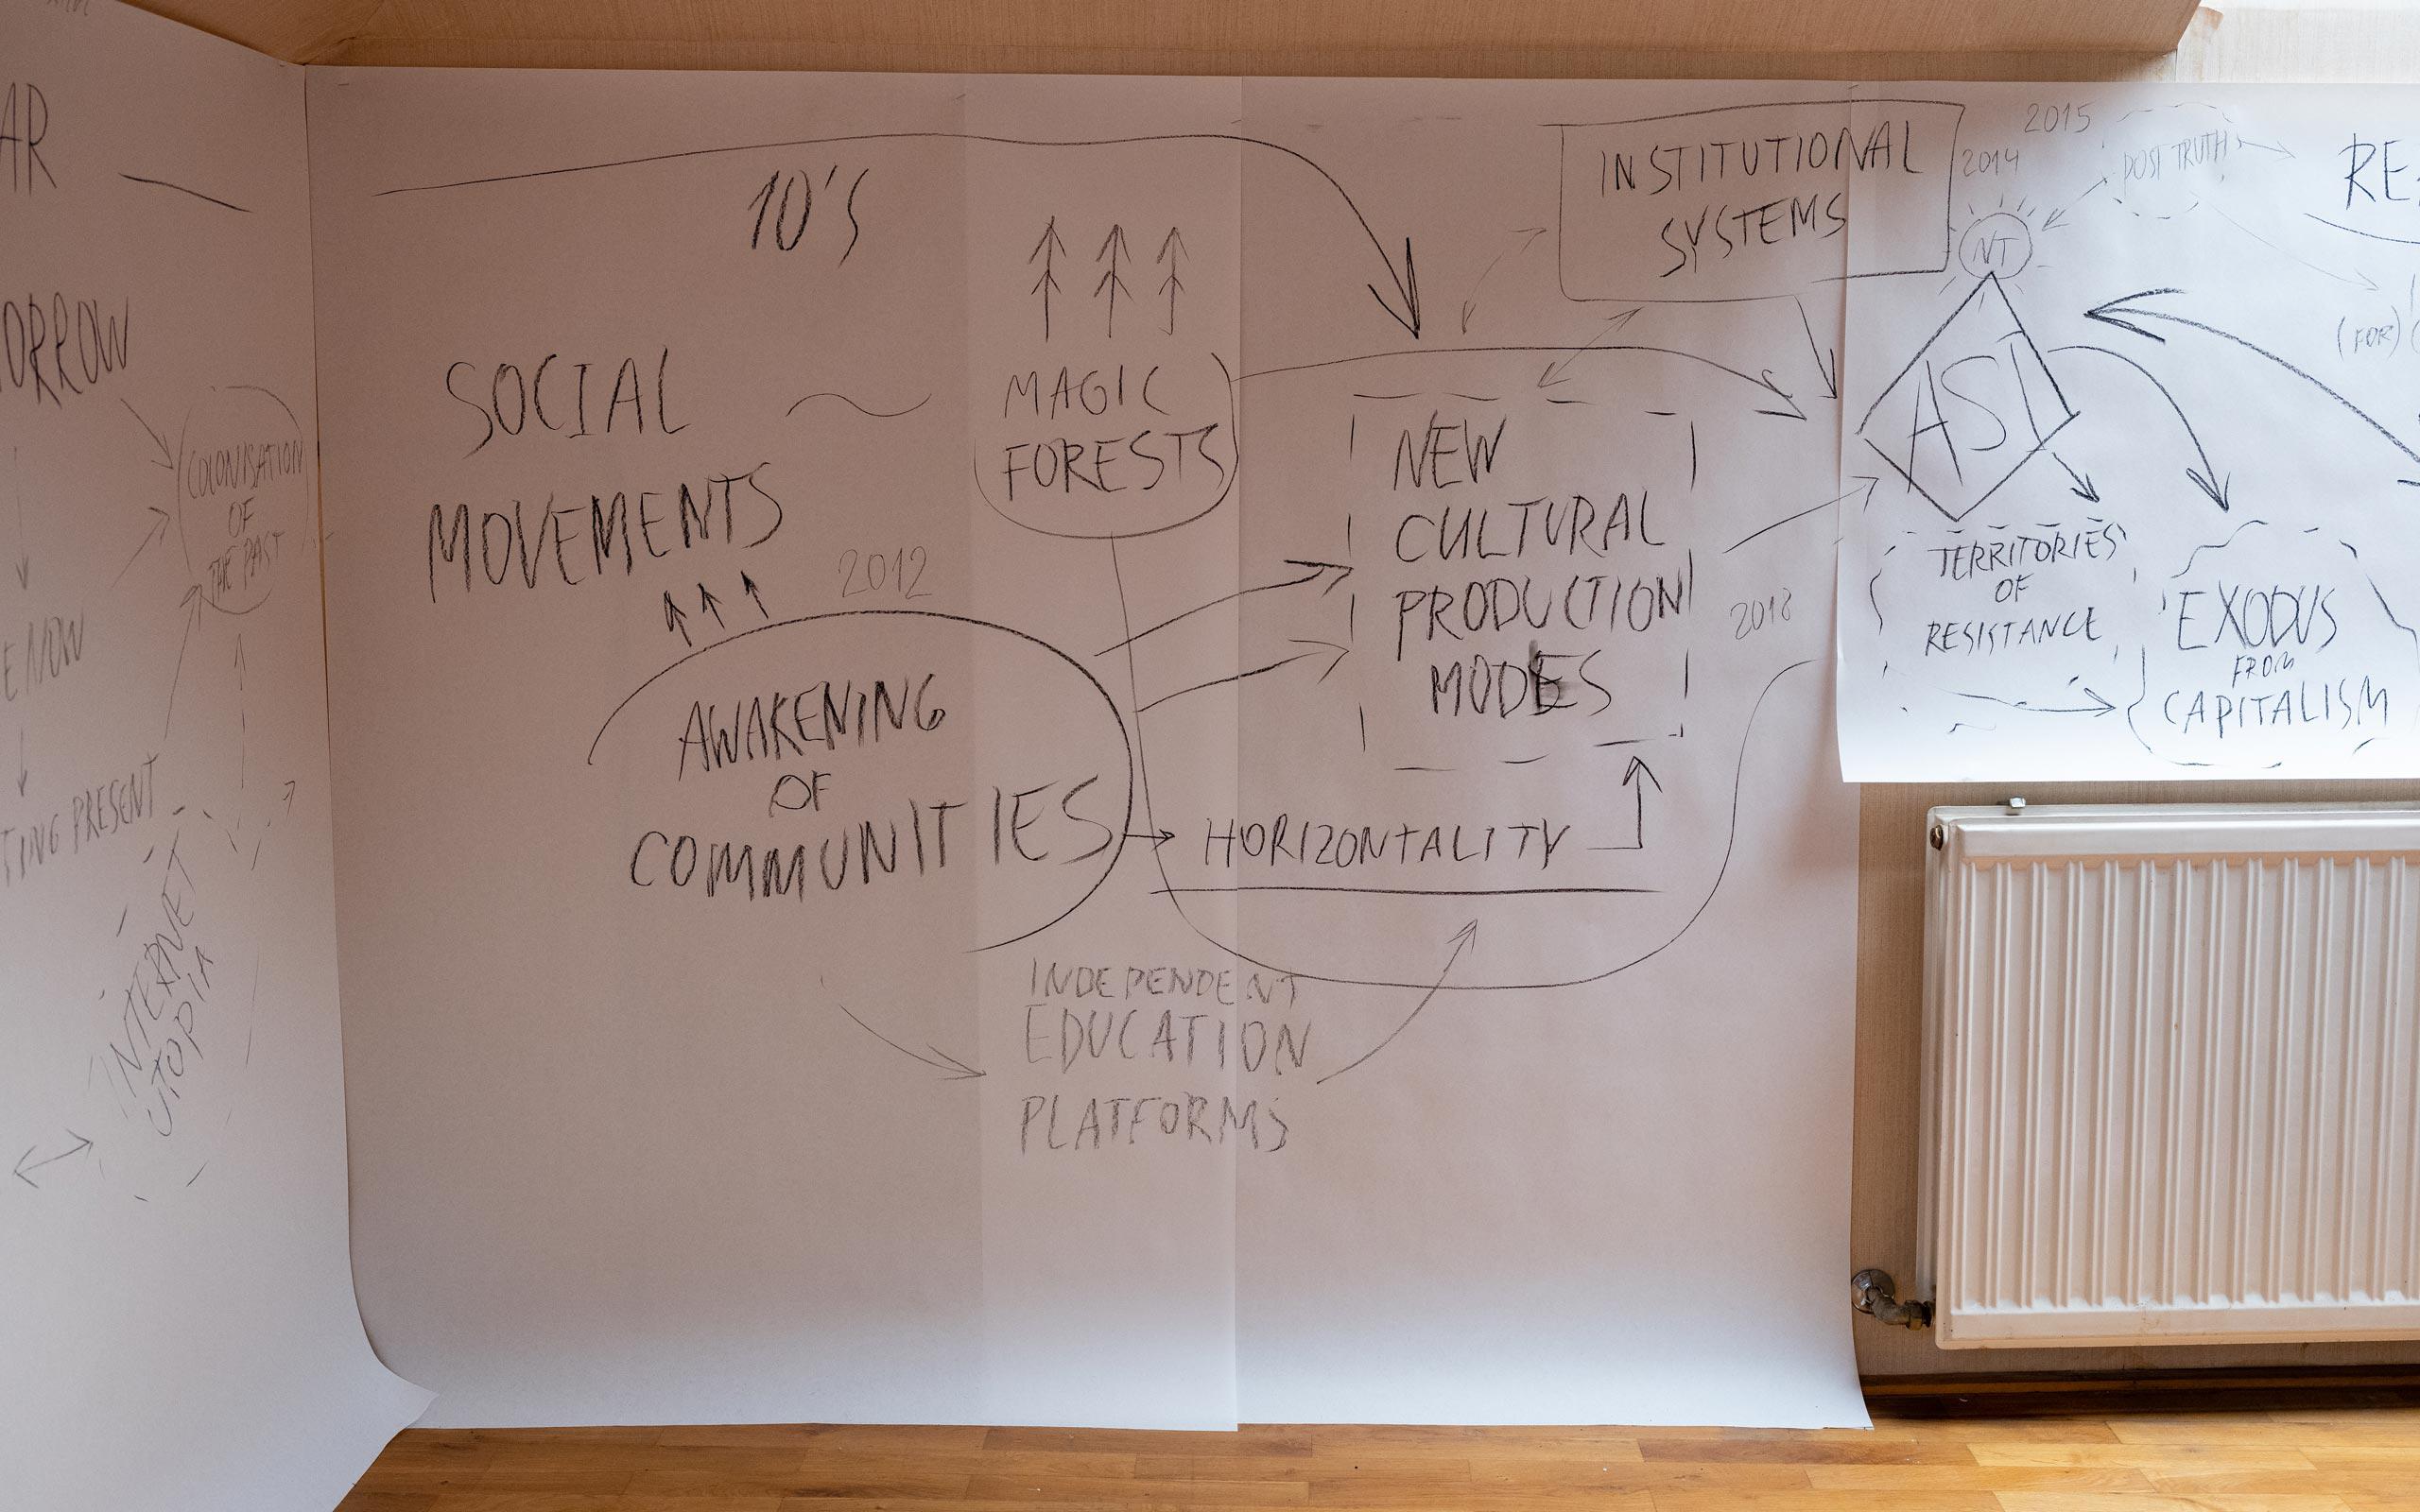 COLONISATION
OF
THE PAST
INTERNET
UTOPIA
10'S
SOCIAL
MOVEMENTS
MAGIC
FORESTS
2012
AWAKENING
OF
COMMUNITIES
INDEPENDENT
EDUCATION
PLATFORMS
HORIZONTALITY
NEW
CULTURAL
PRODUCTION
MODES
INSTITUTIONAL
SYSTEMS
2014
2015
POST TRUTH
NT
TERRITORIES
OF
RESISTANCE
EXODUS
FROM
CAPITALISM
(FOR)
PRESENT
NOW